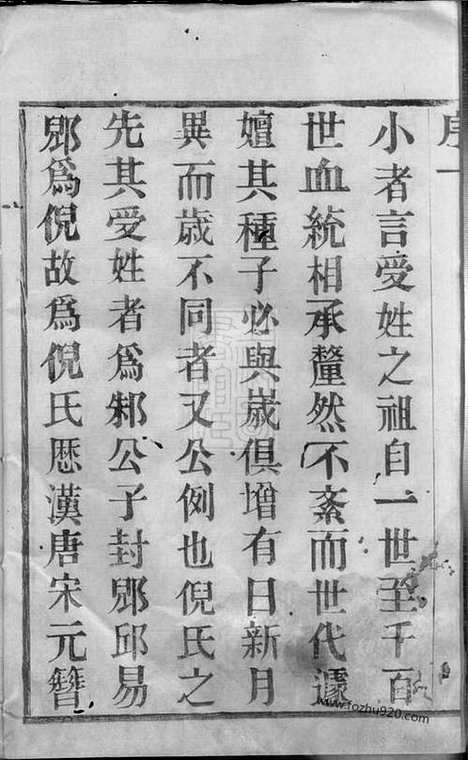 序一
小者言愛姓之祖自一世至千百
世血統相承釐然不紊而世代遽
嬗其種子必與歲俱增有日新月
異而歲不同者又公例也倪氏之
先其愛姓者為邾公子封郳邱易
郳為倪故為倪氏歷漢唐宋元簪
www.fozhu920.com